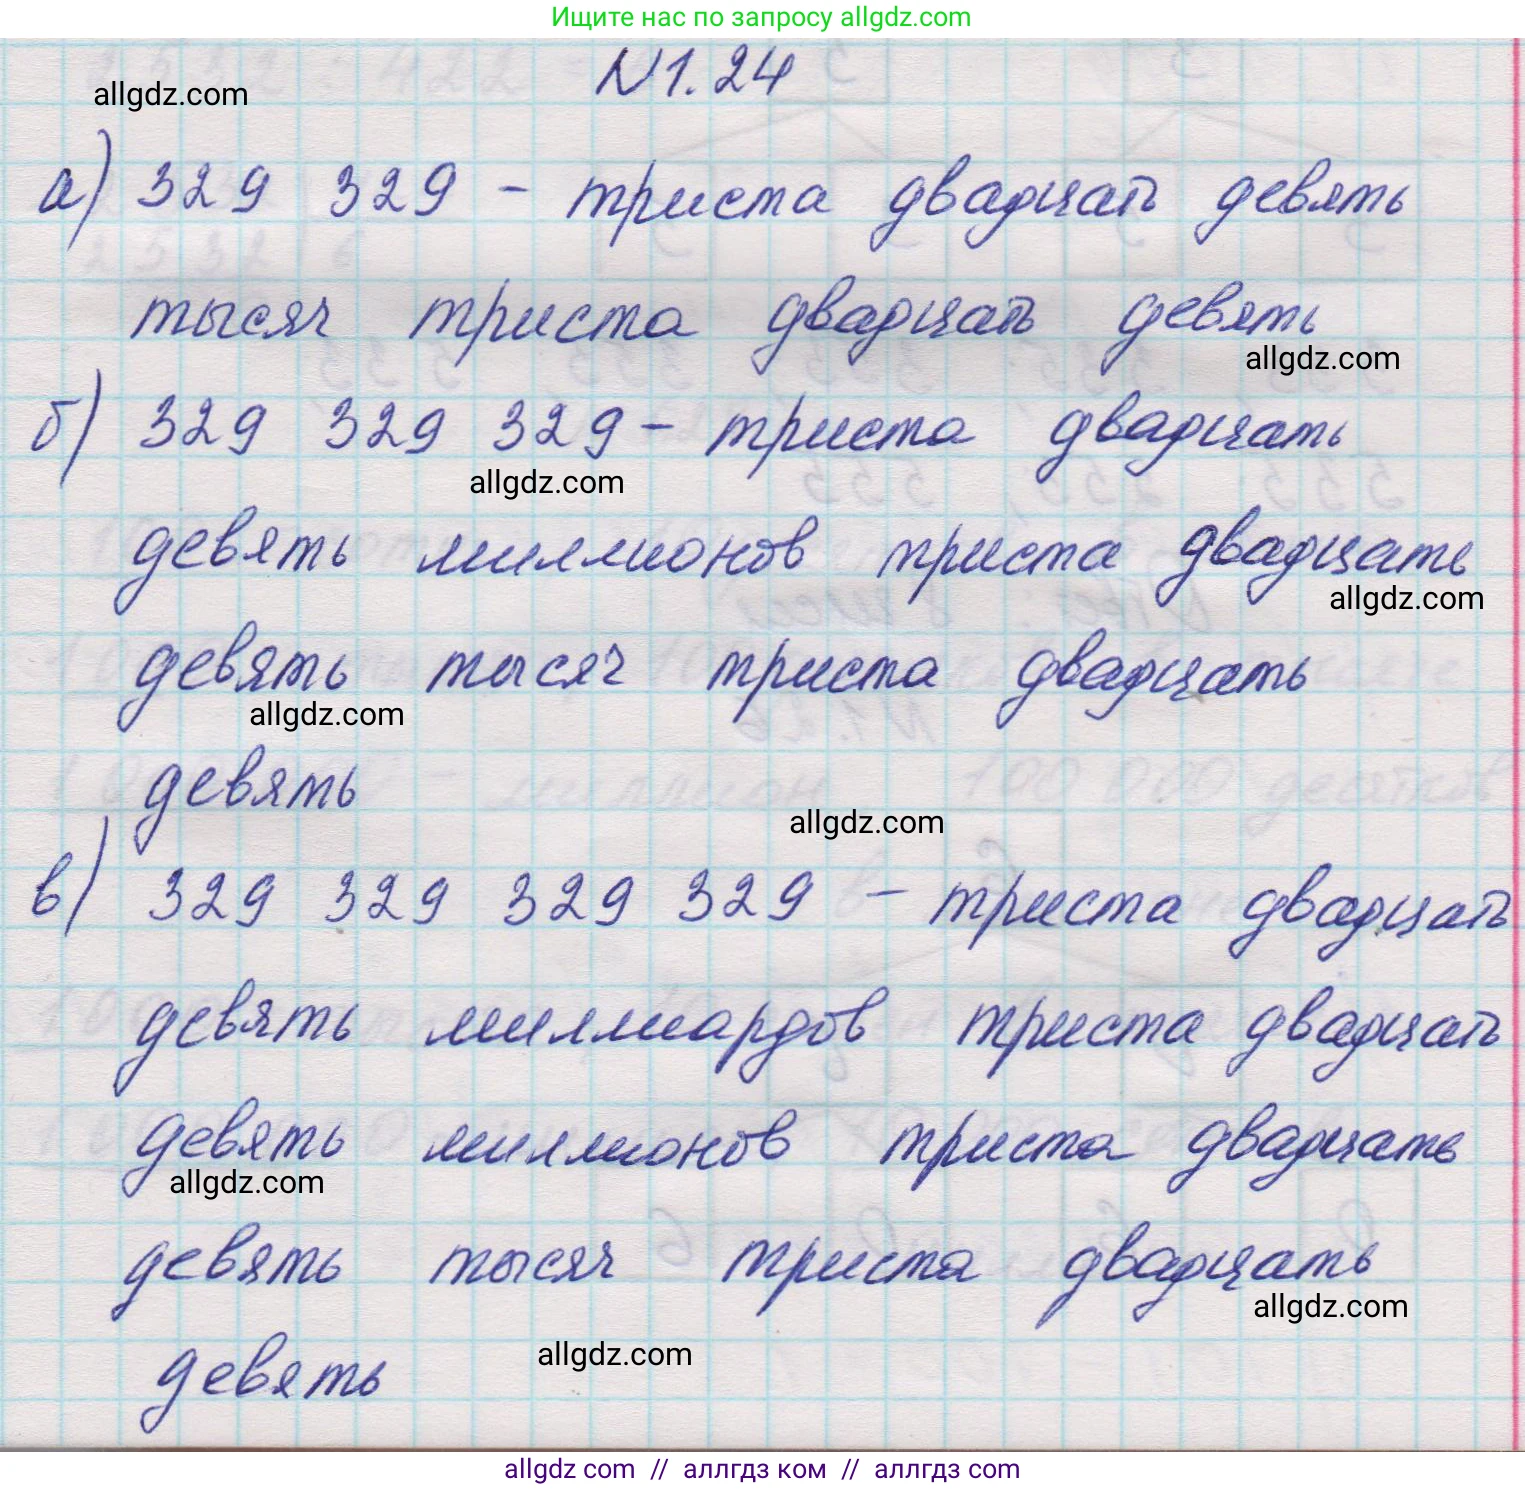 Ищите нас по запросу allgdz.com
N 1.24
allgdz.com
а) 329 329 - триста двадцать девять
тысяч триста двадцать девять
allgdz.com
б) 329 329 329 - триста двадцать
allgdz.com
девять миллионов триста двадцать
allgdz.com
девять тысяч триста двадцать
allgdz.com
девять
allgdz.com
в) 329 329 329 329 - триста двадцать
девять миллиардов триста двадцать
девять миллионов триста двадцать
allgdz.com
девять тысяч триста двадцать
allgdz.com
девять
allgdz.com
allgdz com // аллгдз ком // аллгдз com